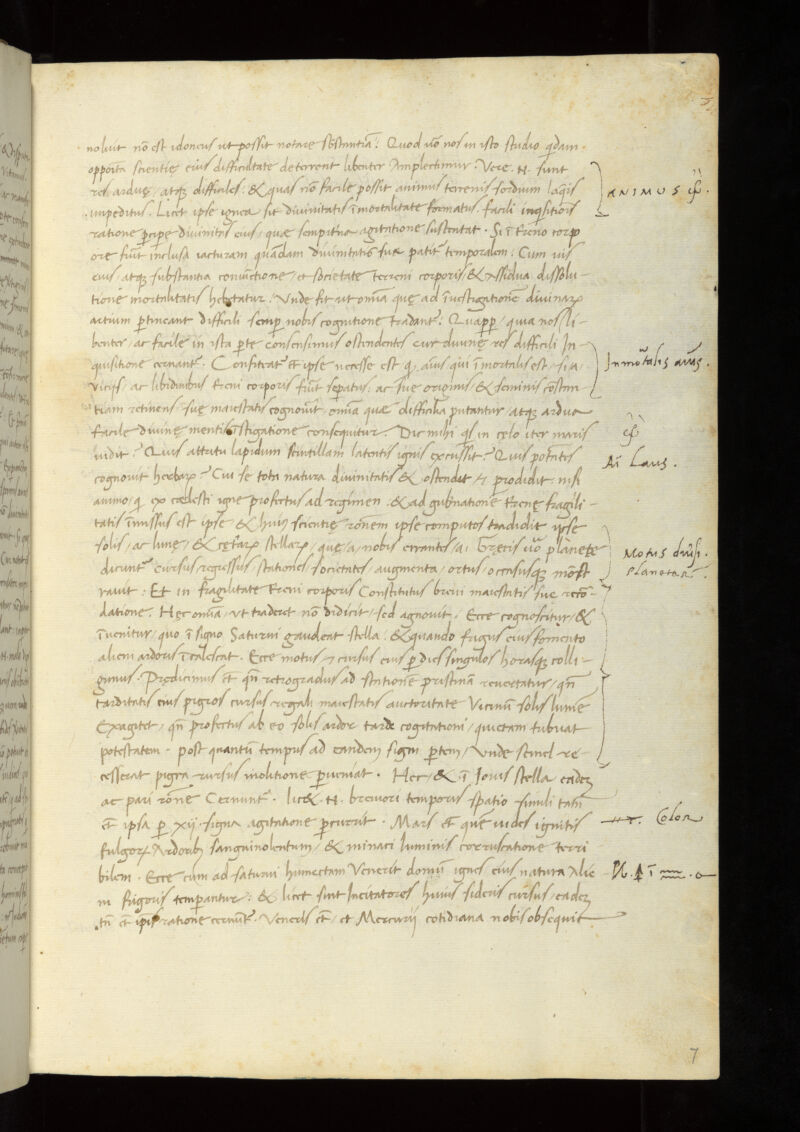 noluit nõ est idoneus ut possit notare sbstantiã. Quod uõ nos in isto studio qdam
opporta scientię eius difficultate deterrent libenter Amplectimur. Vere .N. sunt
res arduę, atqꝫ difficiles: & quas nõ facile possit animus terrenis sordium laqis
impeditus. Licet ipse ignea sit diuinitatis ĩmortalitate formatus. facili inqsitiõis
ratione pcipe diuinitas eius, quae sempitna agitatione sustentat. Si ĩ treno corp
ore fuit inclusa iacturam quandam diuinitatis suae patit temporalem: Cum uis
eius, atqꝫ substantia coniunctione, et societate terreni corporis, & assidua dissolu-
tione mortalitatis hebetatur. Vnde fit ut omia que ad ĩuestigationẽ diuinaꝝ
artium ptineant difficili semp nobis cognitione tradant. Quappꝑ, quia nos li-
benter, ac facile in ista pte consensimus ostendentes cur diuinę res difficili In
quisitione cernant. Confiteat et ipse necesse est q aius qui ĩmortalis est, si a
uiciis ac libidinibus treni corporis fuit sepatus: ac sue originis, & seminis cõstan
tiam retinens, sue maiestatis cognouit, omia quae difficilia putantur, atqꝫ ardua
facile diuine mentis ĩuestigatione consequitur. Dic mihi qs in celo iter maris
uidit? Quis attritu lapidum scintillam latentis ignis excussit? Quis potẽtias
cognouit herbaꝝ? Cui se tota natura diuinitatis & ostendit & prodidit nisi
animo, q ex caelesti igne profectus ad regimen & ad gubnatione trenę fragili-
tatis ĩmissus est ipse & huius scientię rõnem ipse computos tradidit ipse
solis, ac lunę, & cetaꝝ stellaꝝ, quę, a, nobis errantes, a, Grecis uõ planete
dicunt cursus regressus stationes societates augmenta, ortus, occasusqꝫ mõst
rauit, Et in fragilitate treni corporis Constitutus breui maiestatis sue recõ-
datione. Hec omia, ut traderet nõ didicit, sed agnouit, Ecce cognoscitur, &
ĩuenitur, quo ĩ signo Saturni gaudeat stella: & quando frigus eius fomento
alieni ardoris ĩcalescat. Ecce motus, & cursus eius p dies singulos horasqꝫ colli-
gimus. Predicimus et qñ retrogradus ad stationẽ pristinã reuertatur, qñ
tarditatis eius pigros cursus regali maiestatis auctoritate Vicinũ solis lumẽ
Exagitet, qñ profectus ab eo solis ardor tarde cogitationi, quietam tribuat
potestatem. post quantũ tempus ad eandem signi ptem, Vnde semel re-
cesserat pigra rursus molitione pueniat. Hec, & ĩ Iouis stella eadeꝫ
ac pari rõne Cernunt. lic& .N. breuiori temporis spatio simili tañ
et ipsa p xij. signa agitatione pcurrit. Mars et que uides ignitis
fulgoꝝ Ardoribꝫ sanguinolentum, & minaci luminis corruscatione terri
bilem. Ecce cum ad saturni humectam Venerit domũ ignes eius natura Alie
ni frigoris tempantur: & licet sint Incitatores huius sideris cursus, eadeꝫ
tñ et ipis ratione cernunt. Veneris et, et Mercurij cotidiana nobis obsequit
ANIMUS
Inmortalis aius.
Ai Laus.
Motus diuersi.
Planetaꝝ.
Color
7